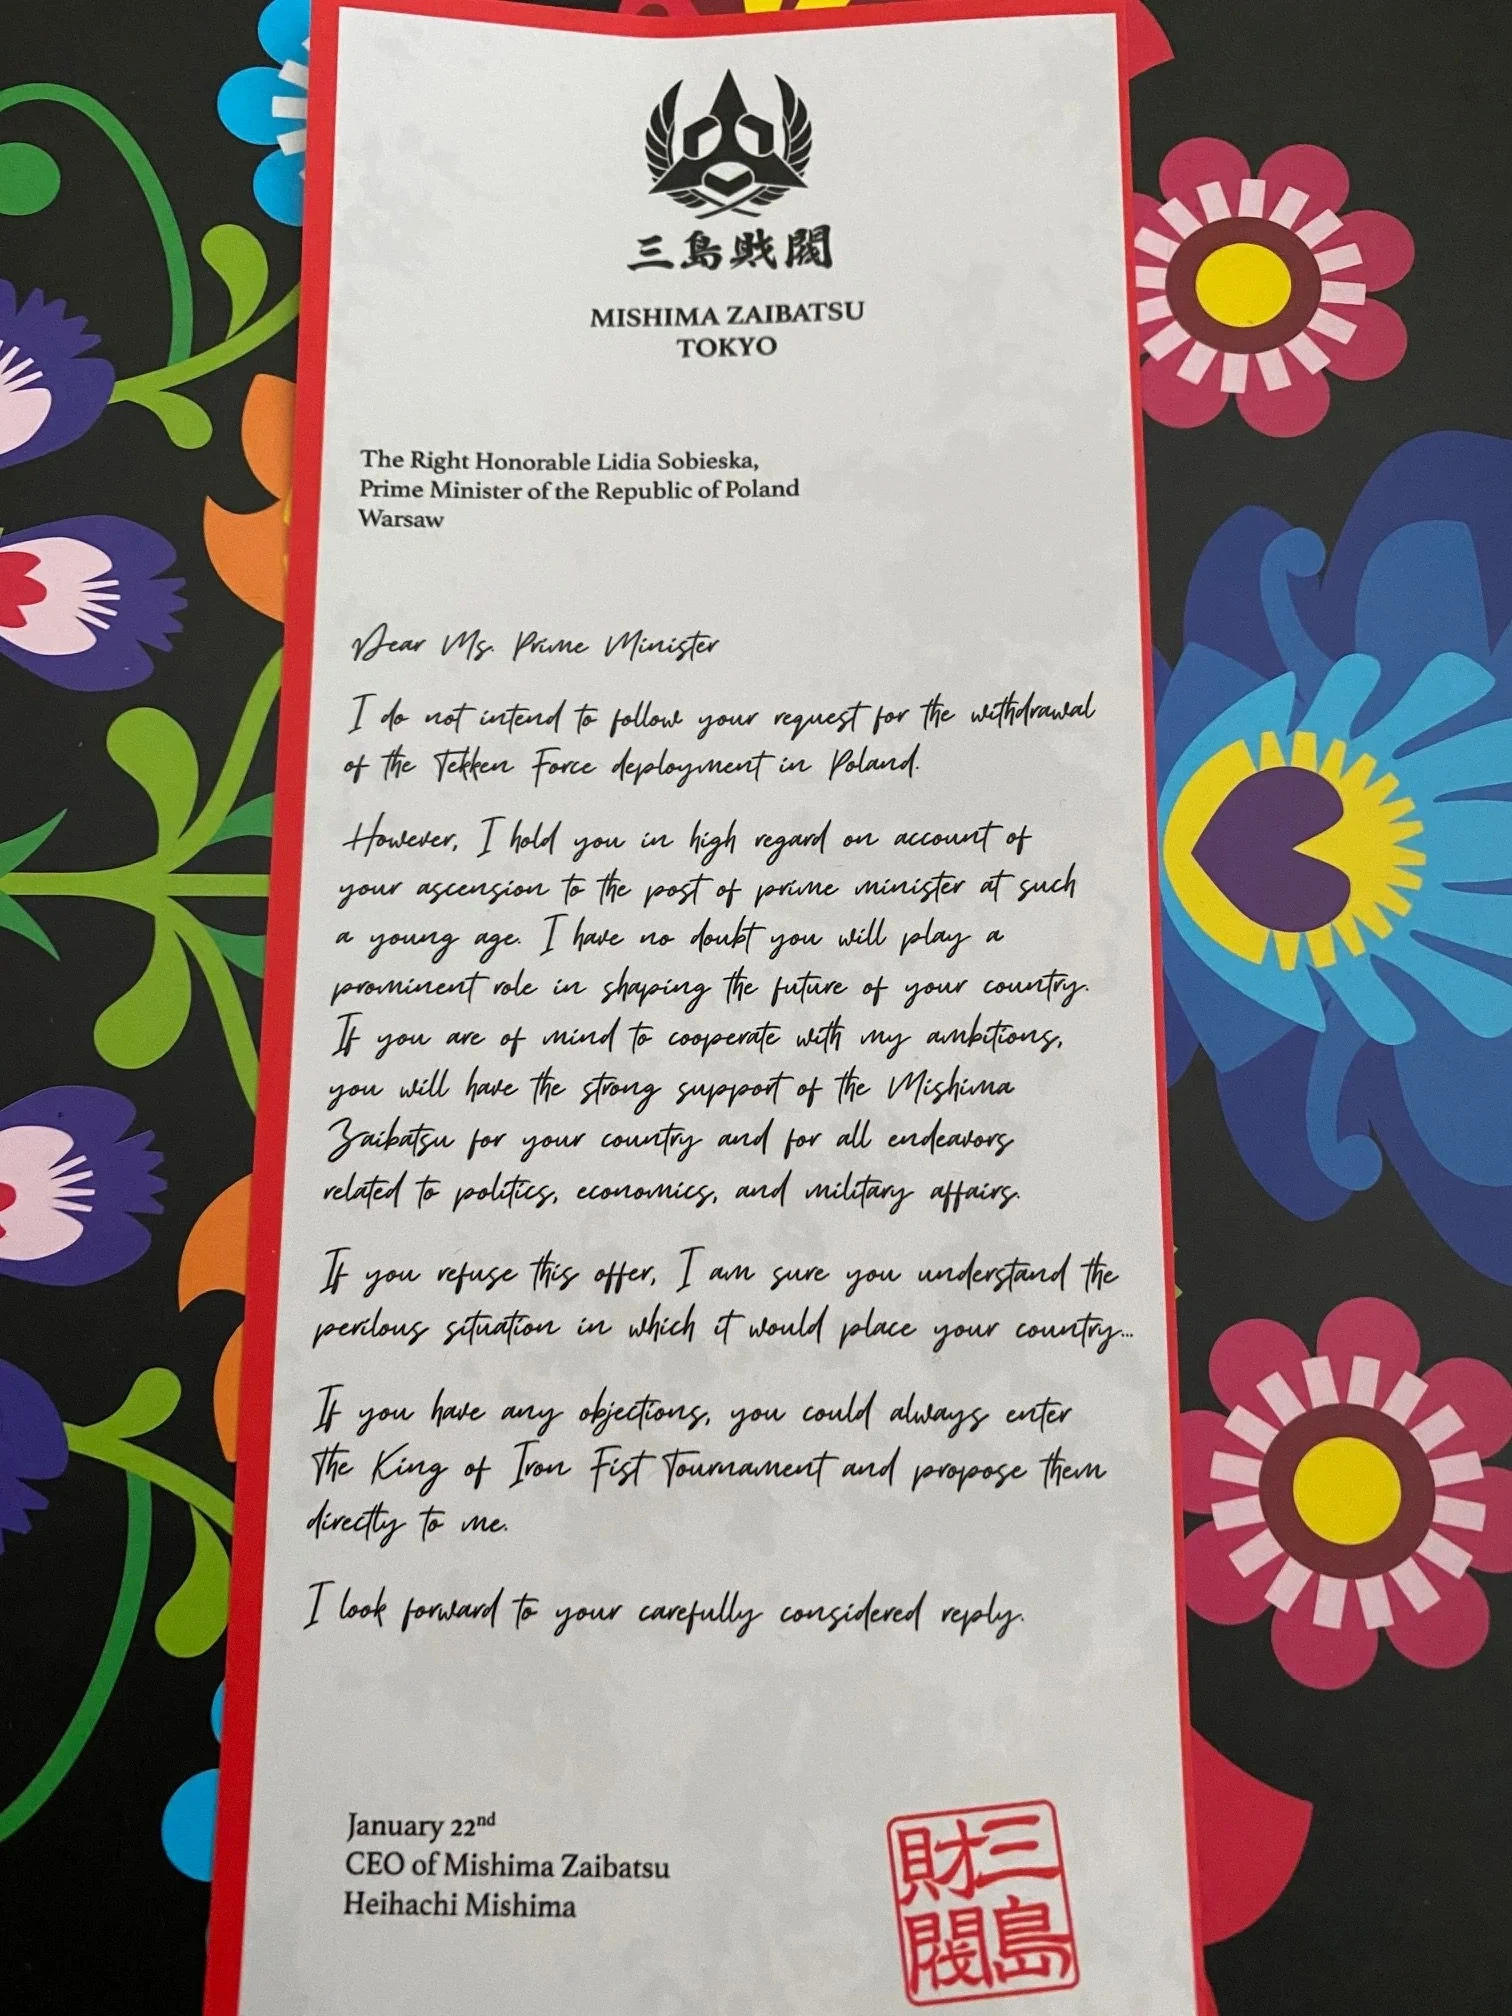 三島財閥
MISHIMA ZAIBATSU
TOKYO
The Right Honorable Lidia Sobieska,
Prime Minister of the Republic of Poland
Warsaw
Dear Ms. Prime Minister
I do not intend to follow your request for the withdrawal
of the Tekken Force deployment in Poland.
However, I hold you in high regard on account of
your ascension to the post of prime minister at such
a young age. I have no doubt you will play a
prominent role in shaping the future of your country.
If you are of mind to cooperate with my ambitions,
you will have the strong support of the Mishima
Zaibatsu for your country and for all endeavors
related to politics, economics, and military affairs.
If you refuse this offer, I am sure you understand the
perilous situation in which it would place your country...
If you have any objections, you could always enter
The King of Iron Fist Tournament and propose them
directly to me.
I look forward to your carefully considered reply.
January 22nd
CEO of Mishima Zaibatsu
Heihachi Mishima
三島
財閥